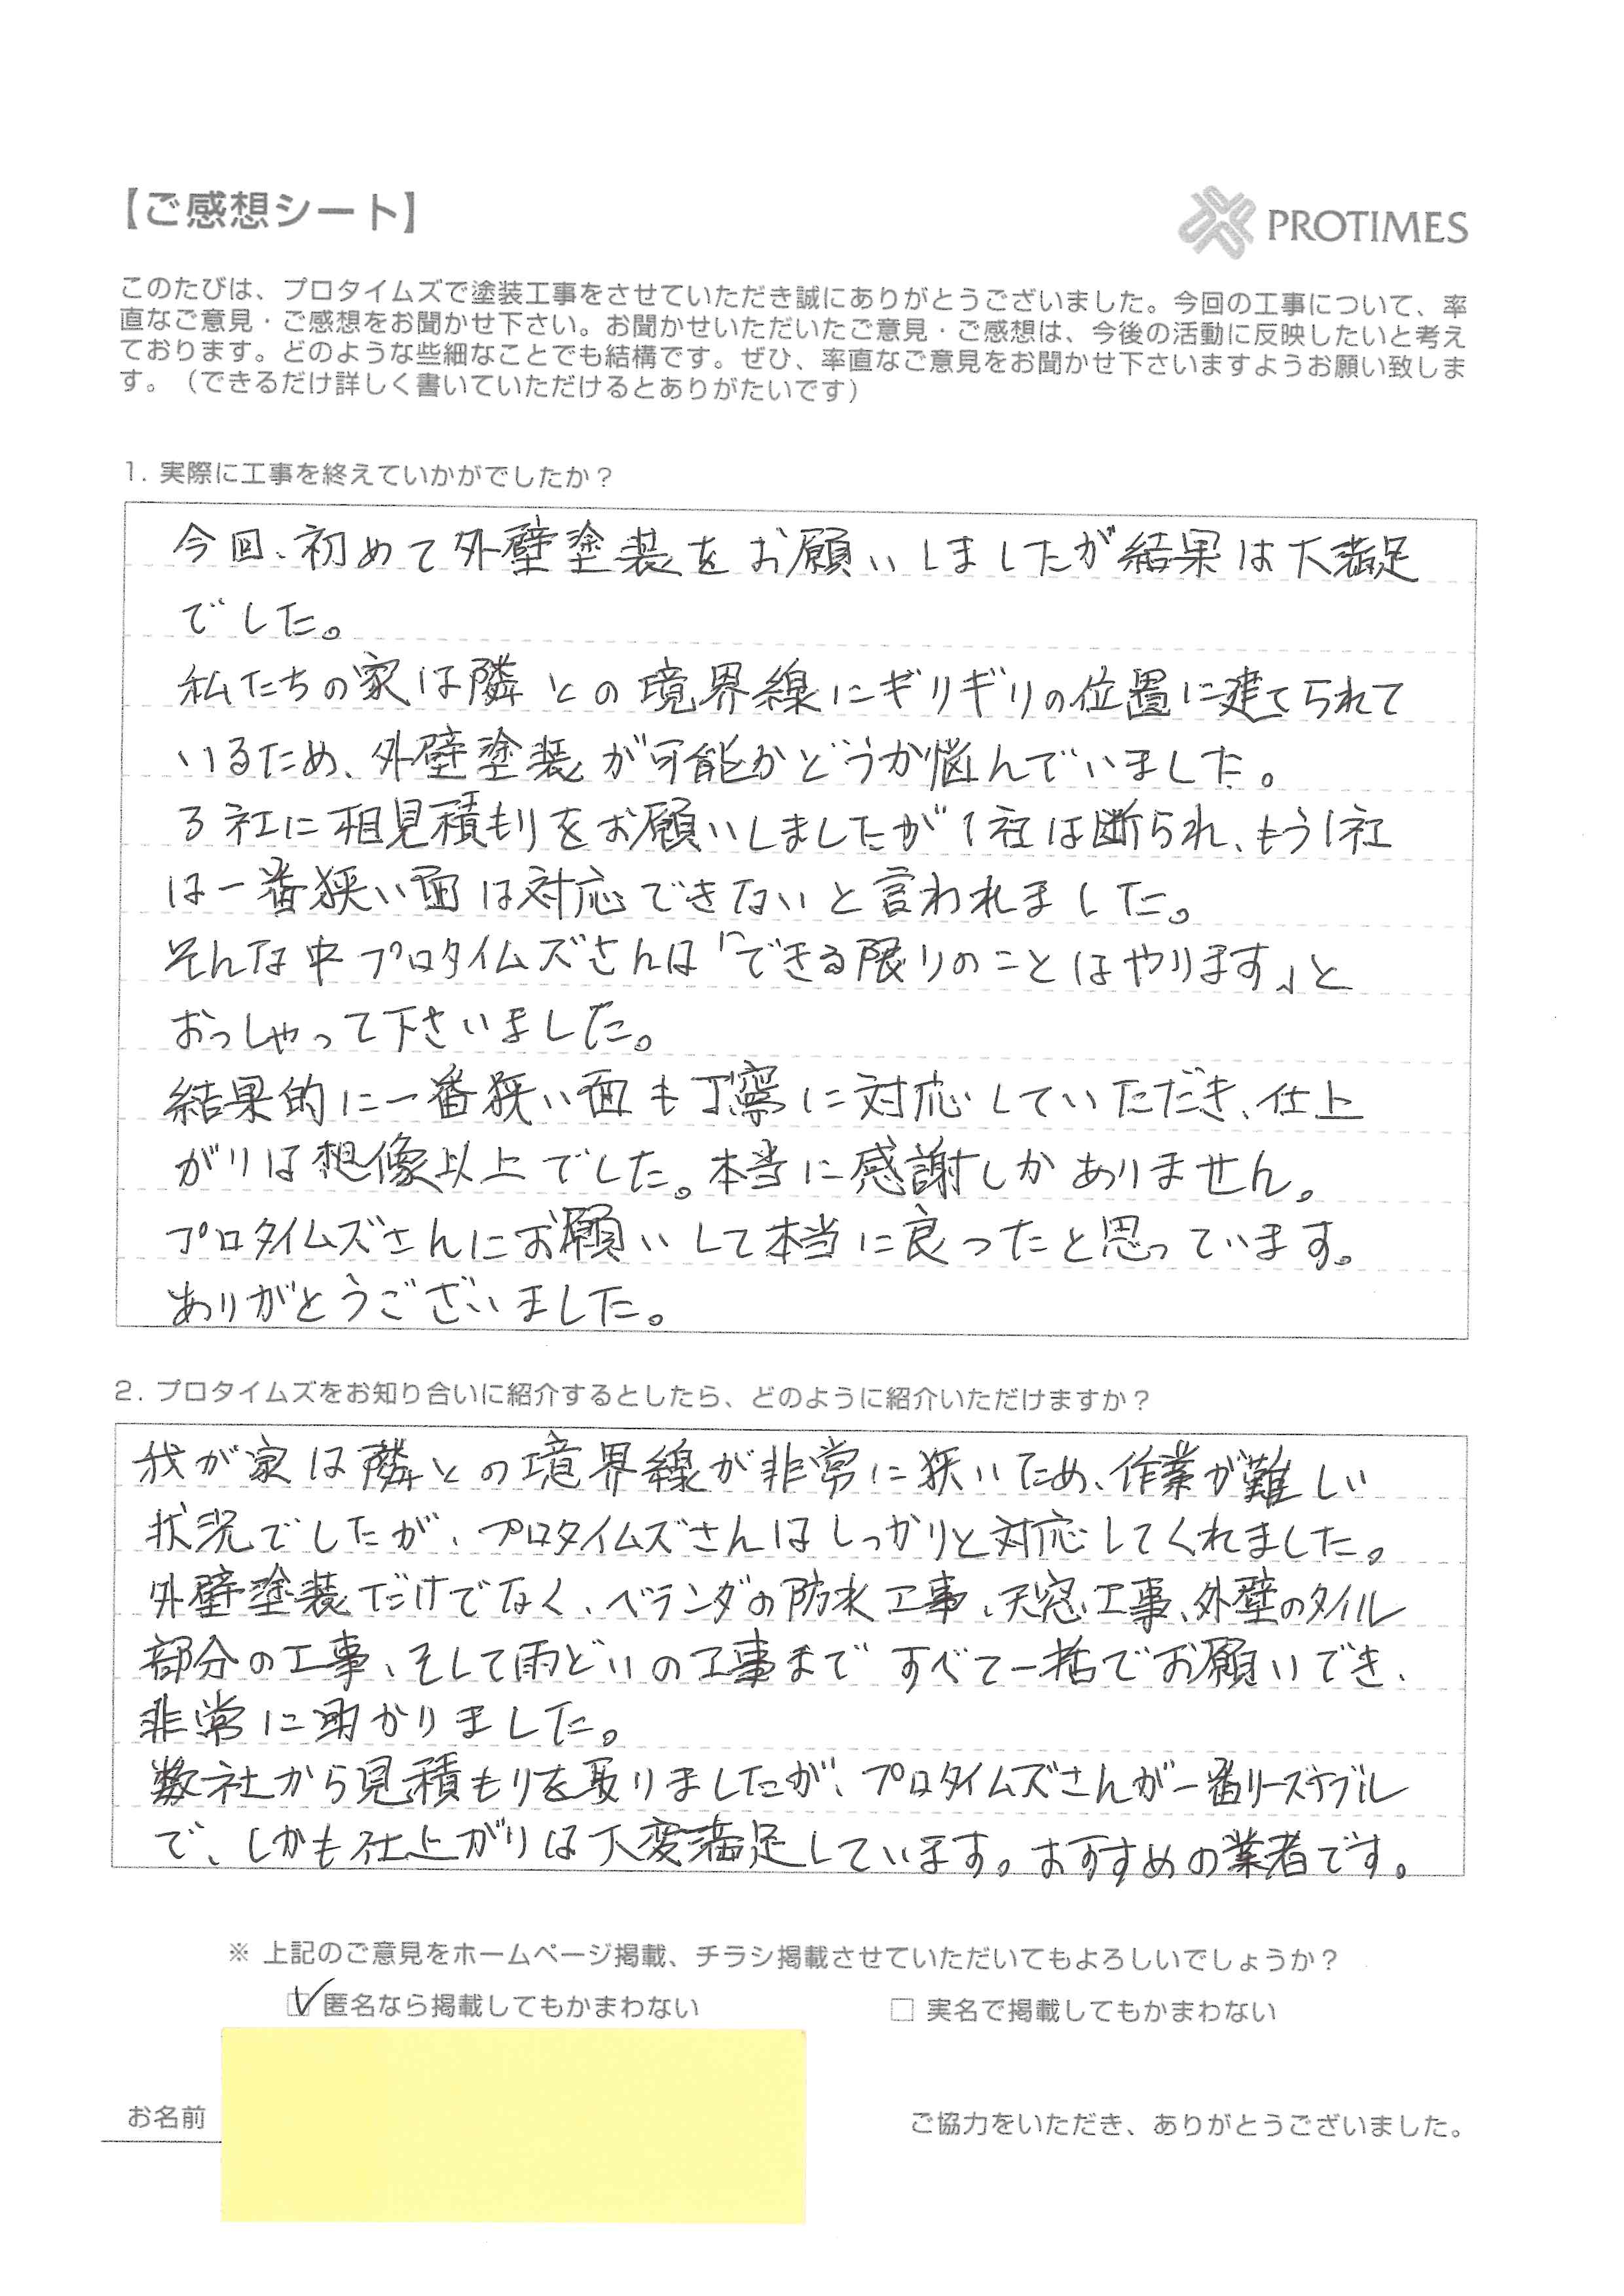 【ご感想シート】
PROTIMES
このたびは、プロタイムズで塗装工事をさせていただき誠にありがとうございました。今回の工事について、率
直なご意見・ご感想をお聞かせ下さい。お聞かせいただいたご意見・ご感想は、今後の活動に反映したいと考え
ております。どのような些細なことでも結構です。ぜひ、率直なご意見をお聞かせ下さいますようお願い致しま
す。（できるだけ詳しく書いていただけるとありがたいです）
1. 実際に工事を終えていかがでしたか？
今回、初めて外壁塗装をお願いしましたが結果は大満足
でした。
私たちの家は隣との境界線にギリギリの位置に建てられて
いるため、外壁塗装が可能かどうか悩んでいました。
3社に相見積もりをお願いしましたが1社は断られ、もう1社
は一番狭い面は対応できないと言われました。
そんな中プロタイムズさんは「できる限りのことはやります」と
おっしゃって下さいました。
結果的に一番狭い面も丁寧に対応していただき、仕上
がりは想像以上でした。本当に感謝しかありません。
プロタイムズさんにお願いして本当に良ったと思っています。
ありがとうございました。
2. プロタイムズをお知り合いに紹介するとしたら、どのように紹介いただけますか？
我が家は隣との境界線が非常に狭いため、作業が難しい
状況でしたが、プロタイムズさんはしっかりと対応してくれました。
外壁塗装だけでなく、ベランダの防水工事、天窓工事、外壁のタイル
部分の工事、そして雨どいの工事まですべて一括でお願いでき、
非常に助かりました。
数社から見積もりを取りましたが、プロタイムズさんが一番リーズナブル
で、しかも仕上がりは大変満足しています。おすすめの業者です。
※ 上記のご意見をホームページ掲載、チラシ掲載させていただいてもよろしいでしょうか？
☑ 匿名なら掲載してもかまわない □ 実名で掲載してもかまわない
お名前
ご協力をいただき、ありがとうございました。